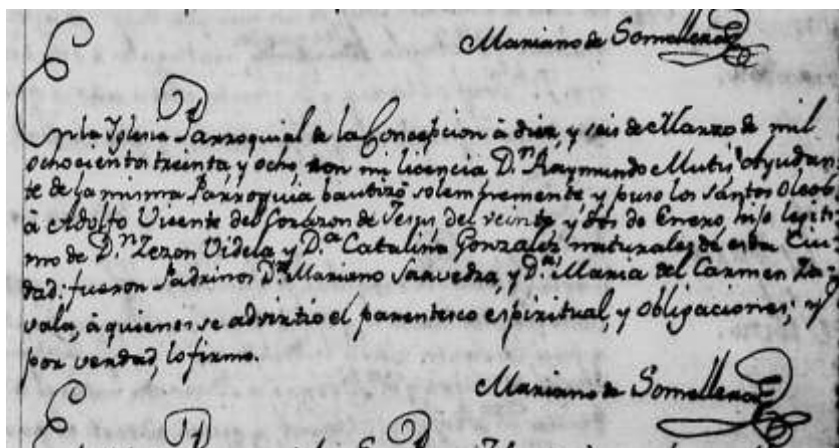 Mariano de Somellera
En la Yglesia Parroquial de la Concepcion à diez, y seis de Marzo de mil
ochocientos treinta, y ocho, con mi licencia D.n Raymundo Mutis Ayudan
te de la misma Parroquia bautizò solemnemente y puso los santos Oleos
à Adolfo Vicente del Corazon de Jesus del veinte y dos de Enero, hijo legiti
mo de D.n Zezon Videla y D.a Catalina Gonzalez naturales de esta Ciu
dad: fueron Padrinos D.n Mariano Saavedra, y D.a Maria del Carmen Za
vala, à quienes se advirtiò el parentesco espiritual, y obligaciones; y
por verdad, lo firmo.
Mariano de Somellera